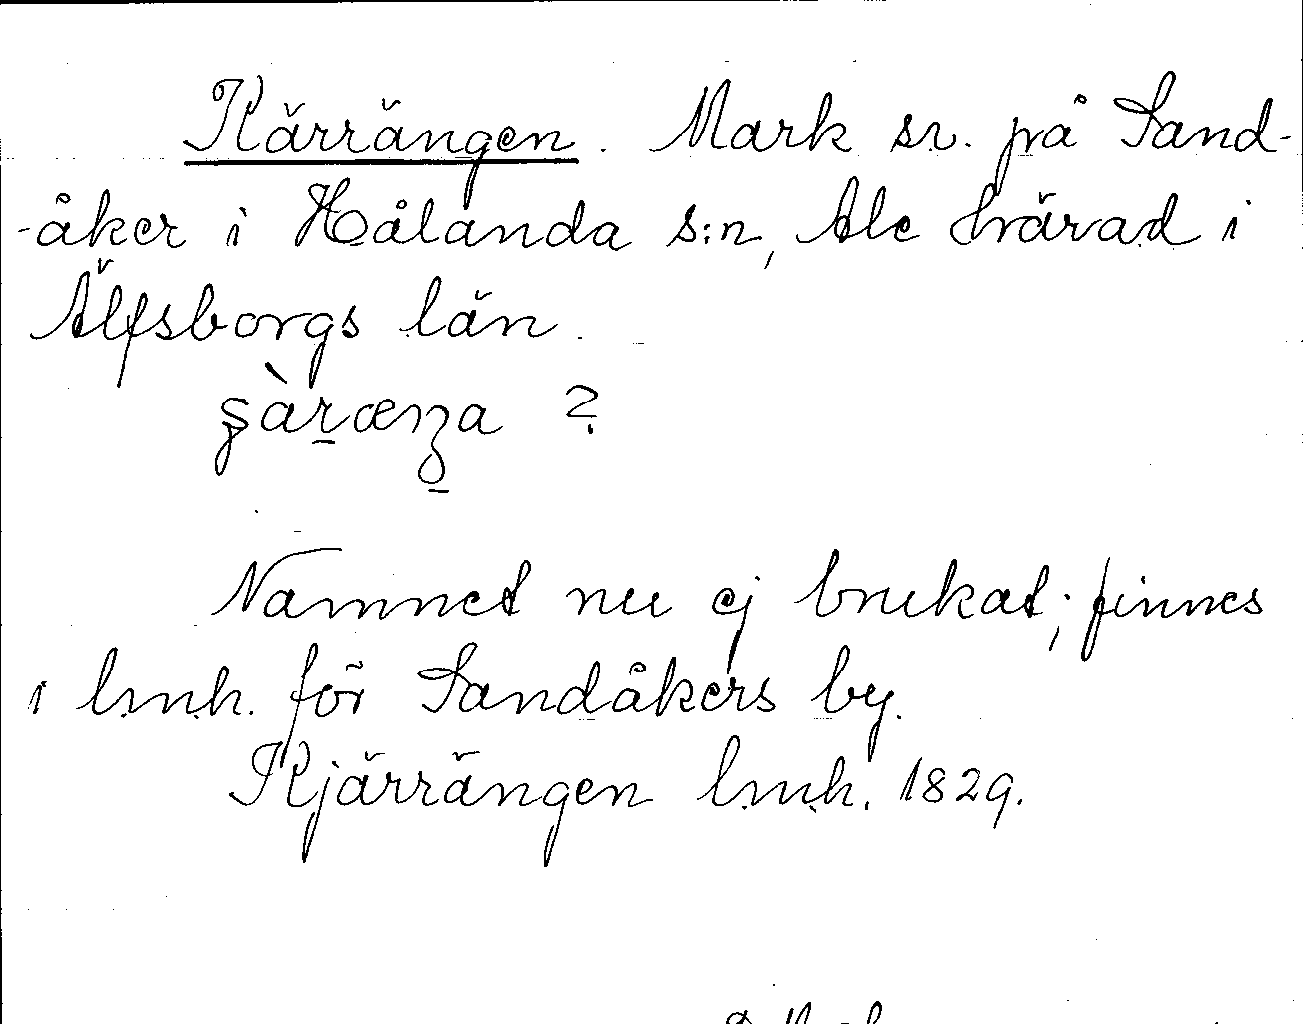 Kärrängen. Mark sr. på Sand-
-åker i Hålanda s:n, Ale härad i
Älfsborgs län.
Namnet nu ej brukat; finnes
i lmh. för Sandåkers by.
Kjärrängen lmh. 1829.